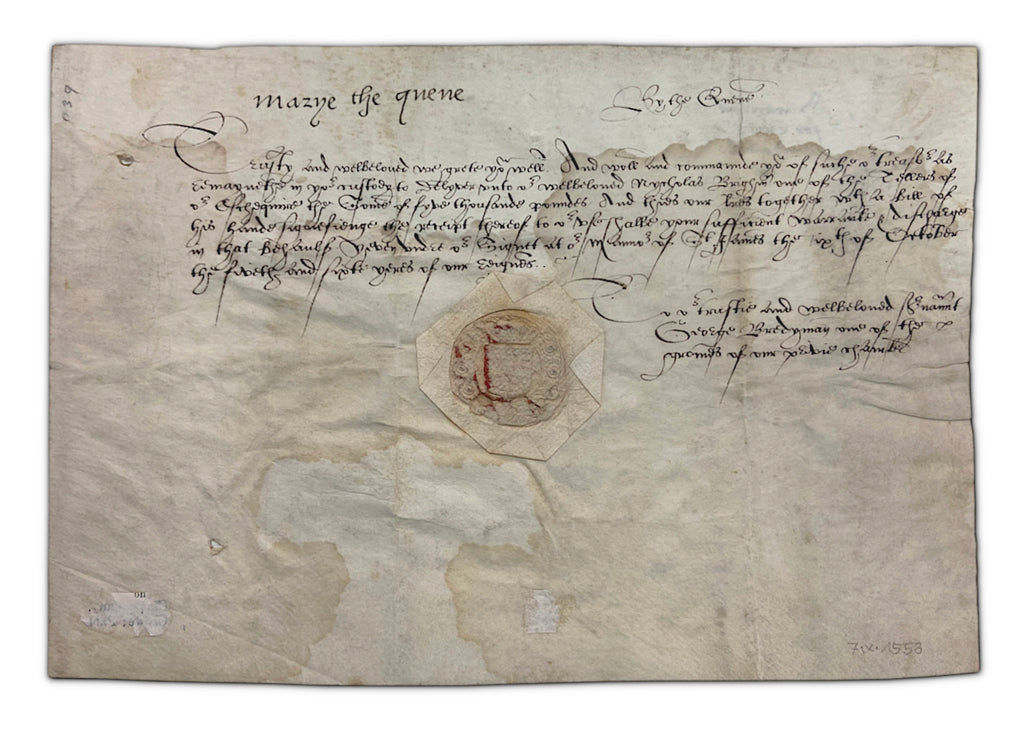 Marye the quene
By the Quene
Trusty and welbeloved we grete you well. And woll and commaunde you of suche or treasor as
remayneth in yor custody to delyver unto or welbeloved Nycholas Brigham one of the Tellers of
or Eschequire the Some of fyve thousande poundes And thies our lres together wth a bill of
his hande signefienge the receipt thereof to or use shalbe your sufficient warraunte & discharge
in that behaulf Yeven undre or Signet at or Mannor of St James the ixth of October
the fyveth and sixte yeres of our Reignes.
To or trustie and welbeloved srvaunt
George Bredyman one of the
gromes of our privie chambre
on
7.X.1553